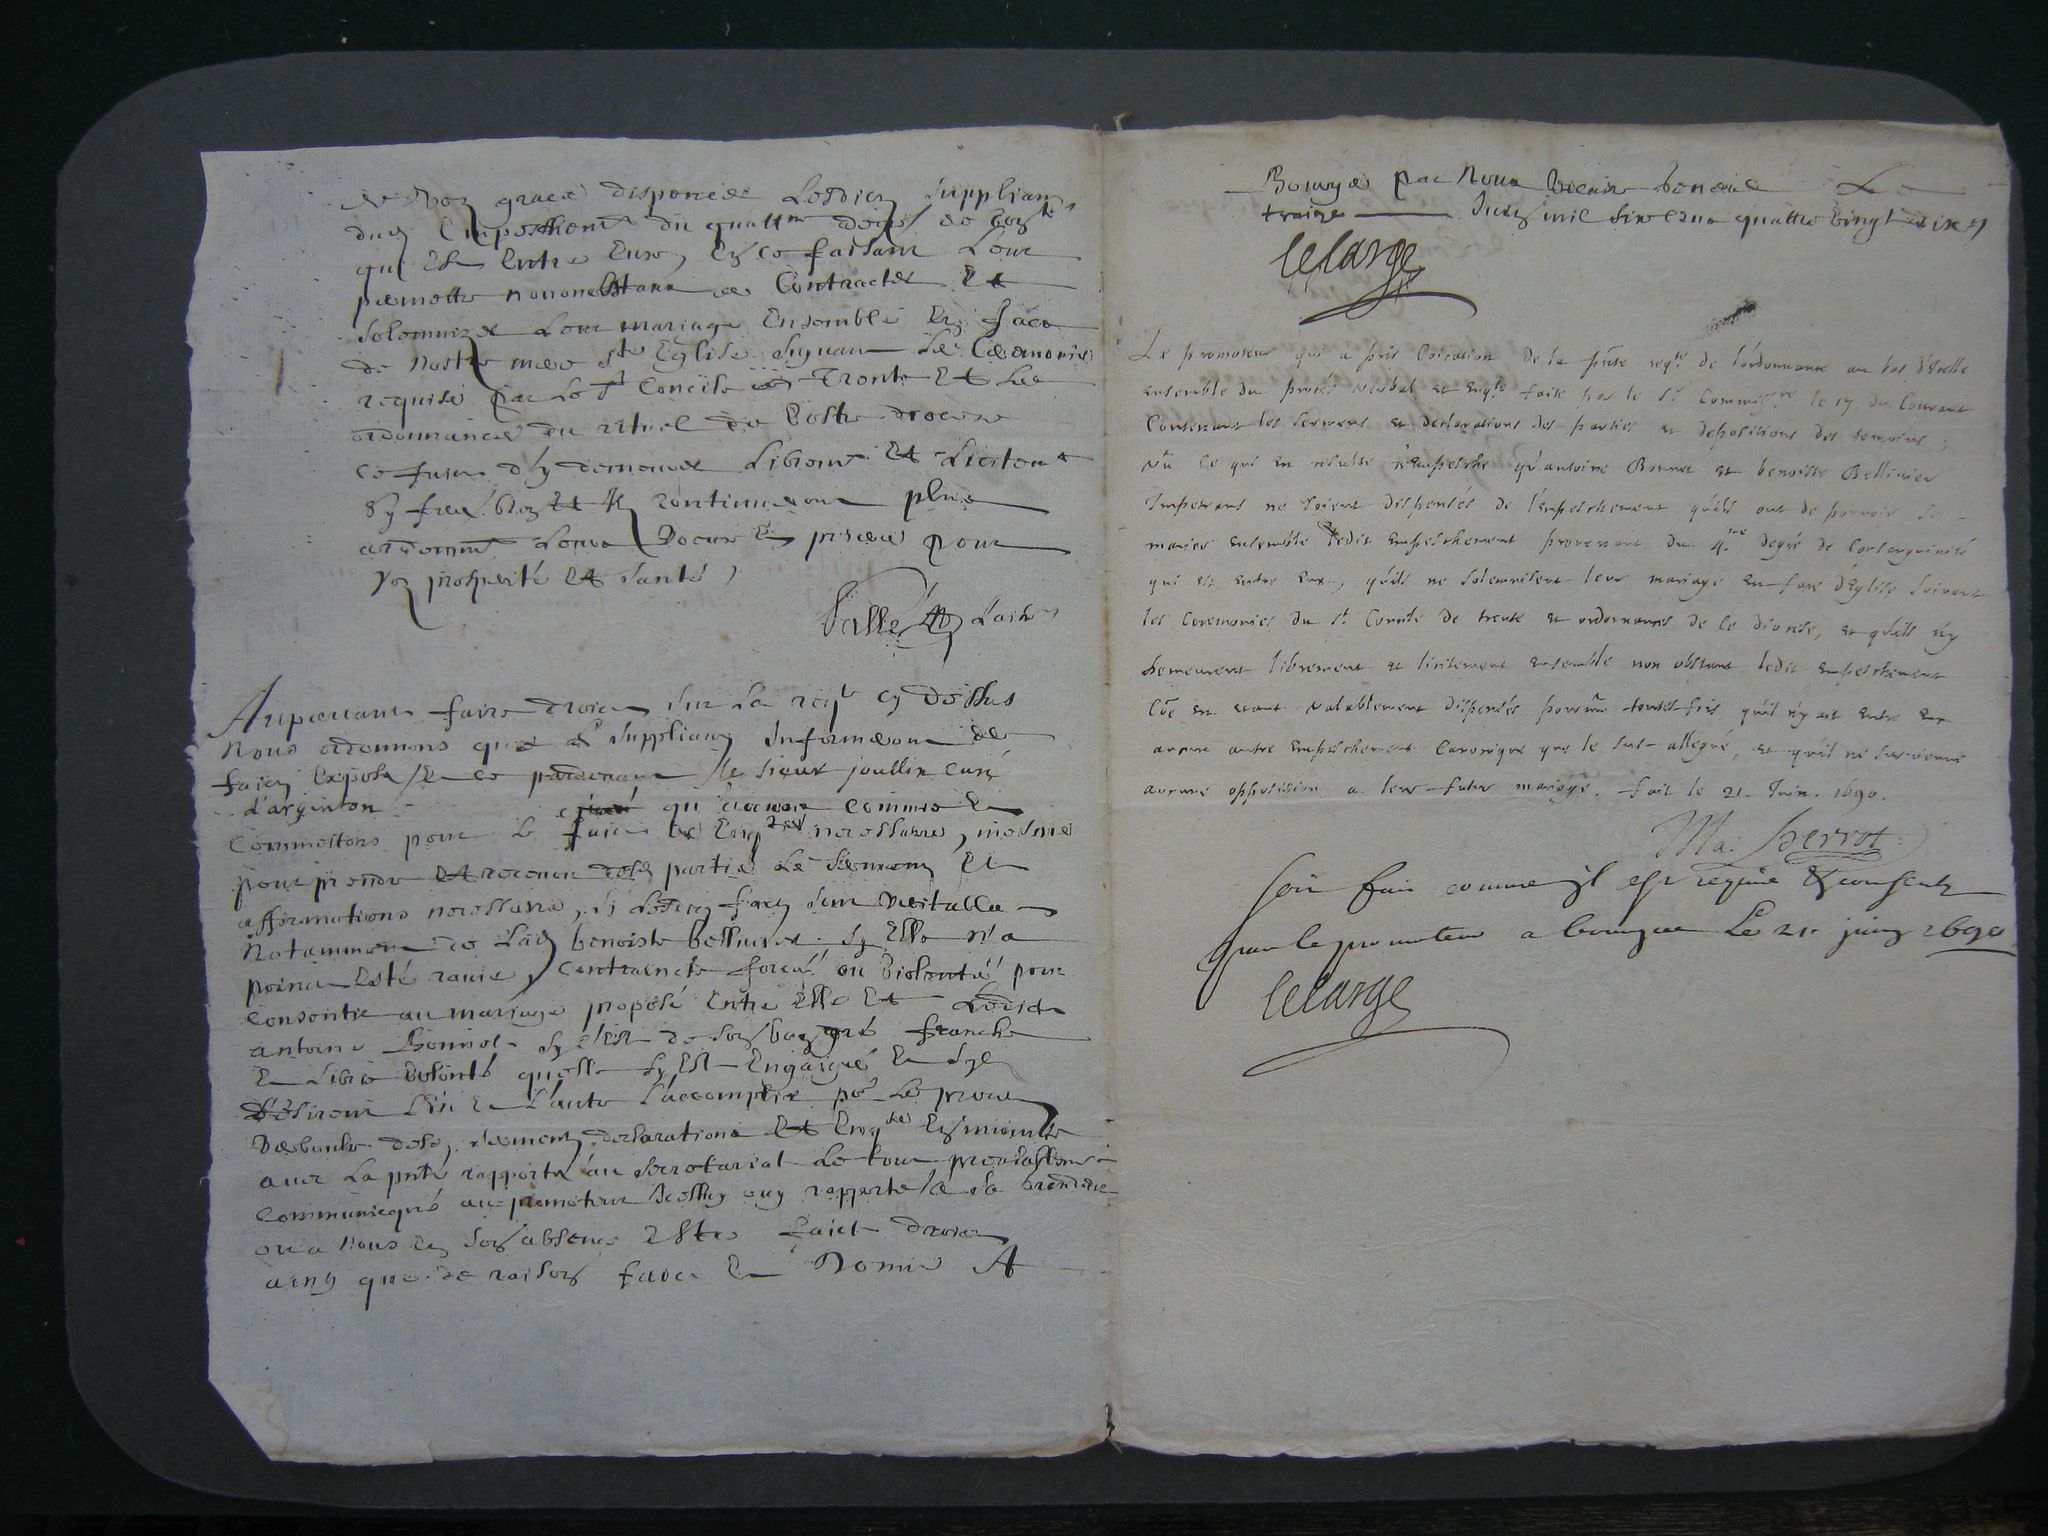 de voz graces dispencer Lesdictz supplians
dud Empeschemt du quattme degré de
qui Est Entre Eux, En ce faisant Leur
permettre nonobstant de Contracter Et
solemnizer Leur mariage Ensemble En face
de nostre mere ste Eglise suyvant Les Ceremonies
requises par Le st Concille de Trente Et Les
ordonnances du rituel de vostre diocese
ce faict d'y demeurer Librement Et Licitemt
Sy ferez bien Et Ilz continueront plus
ardemmt Leurs voeux Et prieres pour
voz prosperité Et santé
Auparavant faire droict sur La reqte cy dessus
Nous ordonnons que les supplians Informeront des
faictz Exposez Et ce pardevant le sieur joullin curé
d'arginton qu'avons commis Et
Commettons pour Le faict de Lenqte necessaire, mesme
pour prendre Et recevoir desd parties Le serment Et
affirmations necessaires, sy Lesdictz faictz sont veritables
Notamment de Lad benoiste bellinier sy Elle n'a
poinct Esté ravie, contraincte forcée ou violentée pour
consentir au mariage proposé Entre Elle Et Ledict
antoine Bonnet sy c'est de son bon gré franche
Et Libre volonté quelle sy Est Engaigée Et sylz
desirent L'un Et L'autre L'accomplir pr Le proces
verbaulx desd sermentz declarations Et Enqte
avec La pnte rapporté au secretariat Le tout prealablemt
communicqué au promoteur Icelluy ouy rapporté
ou a Nous En son absence Estre faict droict
ainsy que de raison faict Et Donné A
Bourges par Nous vicaire general Le
treize Juin mil six cens quattre vingt dix
Lelarge
Le promoteur qui a pris Coication de la pnte reqte de l'ordonnance au bas d'Icelle
ensemble du procés verbal et enqte faite par le Sr Commissre le 17. du Courant
Contenant les serments et declarations des parties et depositions des temoins ;
vû ce qui en resulte n'empesche qu'antoine Bonnet et benoiste Bellinier
Impetrans ne soient dispensés de l'empeschement qu'ils ont de pouvoir se
marier ensemble ledit empeschement provenant du 4.me degré de Consanguinité
qui est entre Eux, qu'ils ne solemnisent leur mariage en face d'Eglise suivant
les Ceremonies du st Concile de trente et ordonnances de ce diocese, et qu'ils n'y
demeurent librement et licitement ensemble non obstant ledit empeschement
Cõe en etant valablement dispensés pourvû toutesfois qu'il n'y ait entre Eux
aucun autre empeschement Canonique que le sus-allegué, et qu'il ne survienne
aucune opposition a leur futur mariage. fait le 21. Juin. 1690.
Ma. Perrot
soit fait comme il est requis & consenty
par le promoteur a bourges Le 21 juin 1690
Lelarge